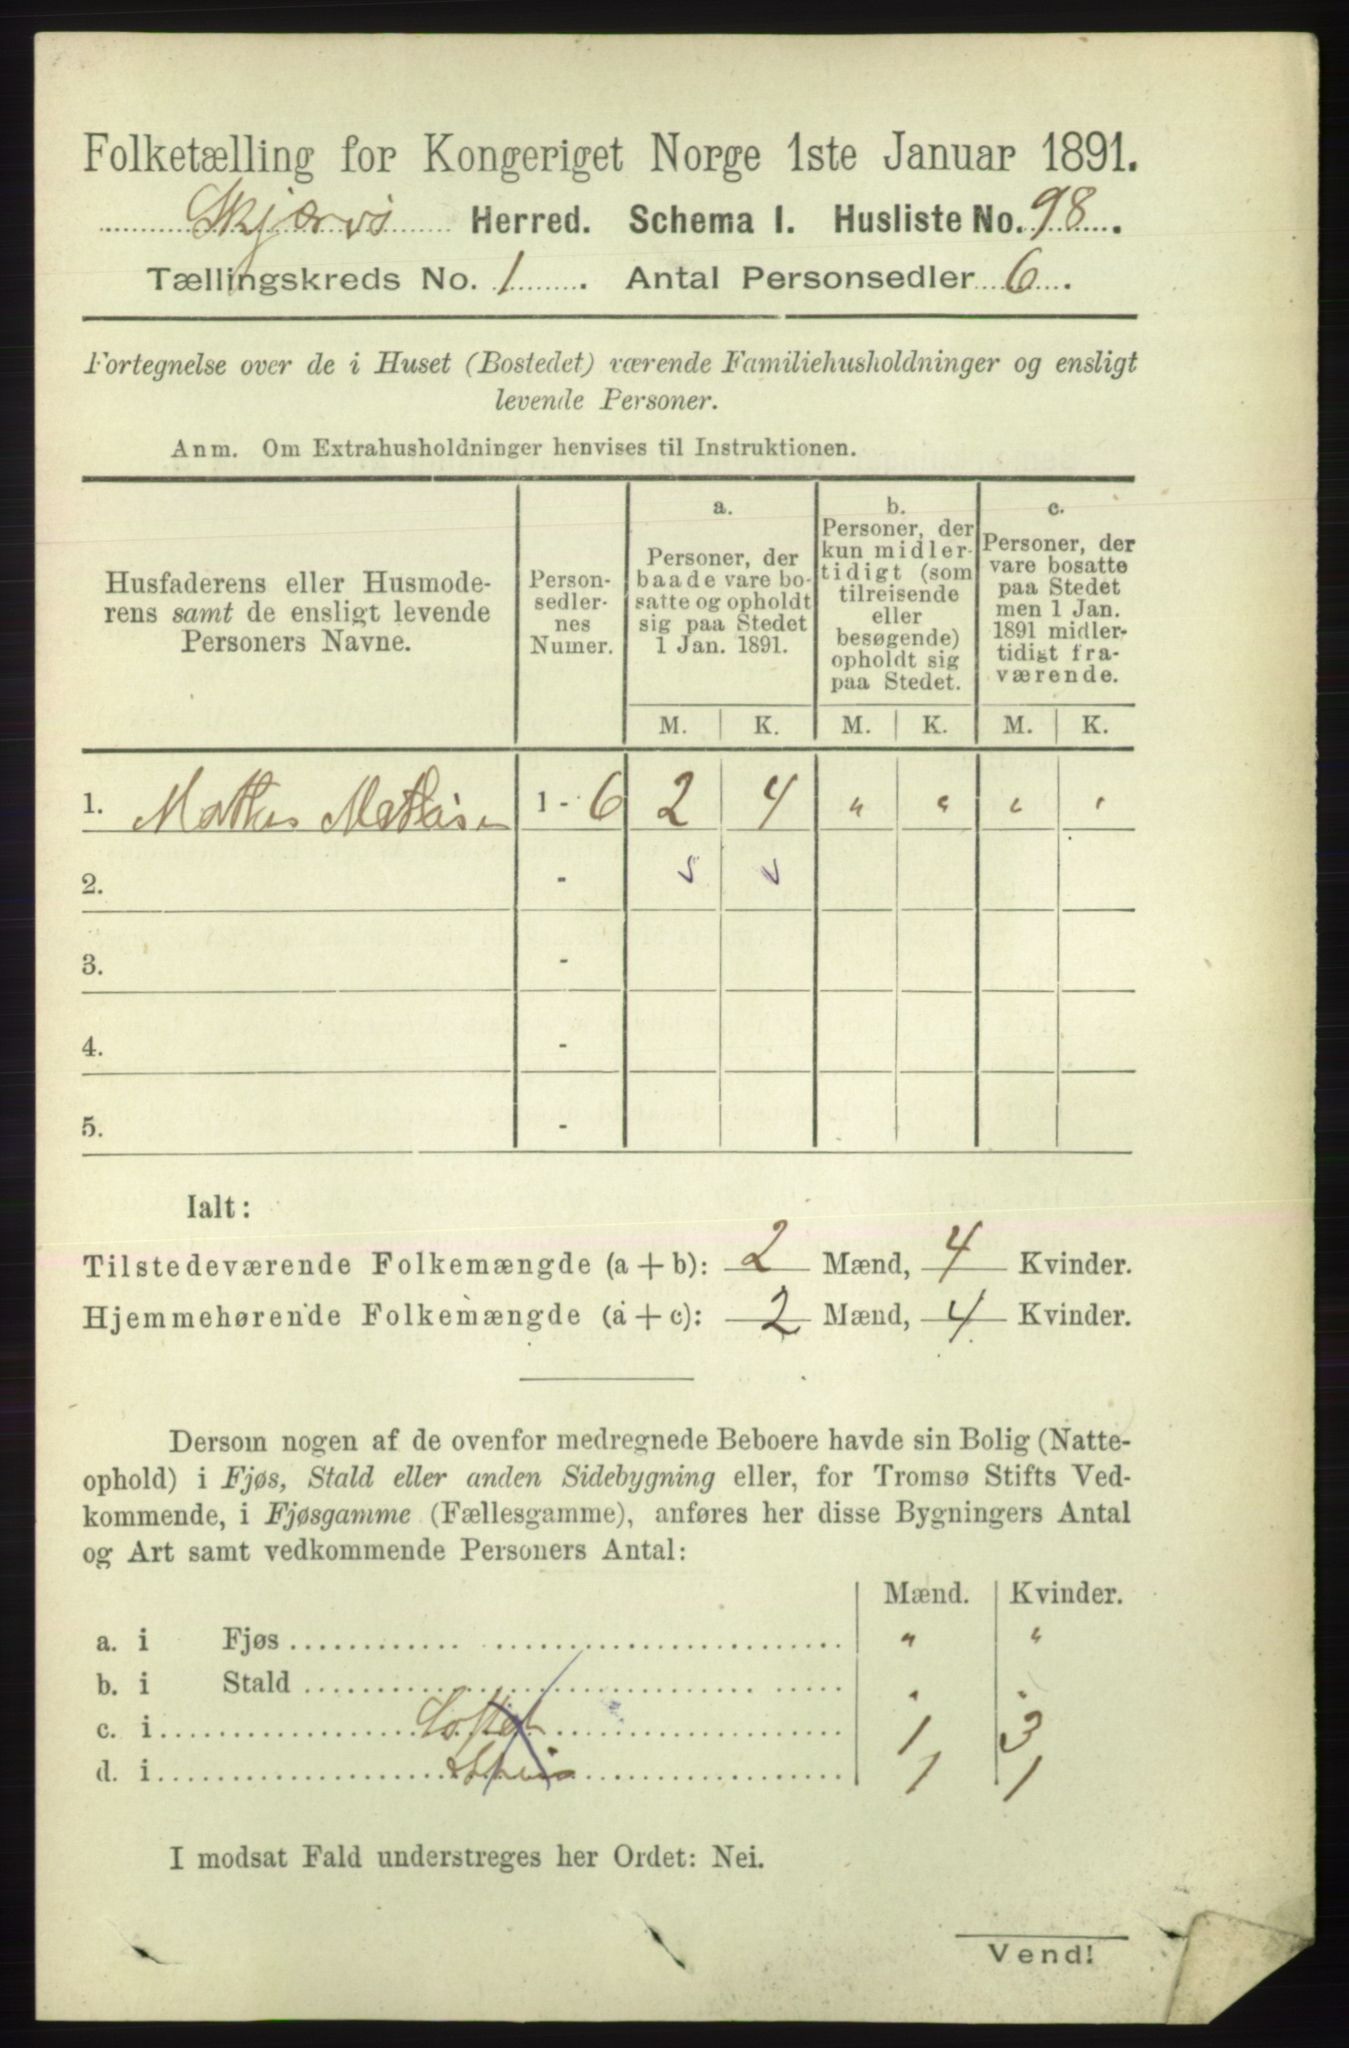 Folketælling for Kongeriget Norge 1ste Januar 1891.
Skjærvø Herred. Schema I. Husliste No. 98.
Tællingskreds No. 1. Antal Personsedler 6.
Fortegnelse over de i Huset (Bostedet) værende Familiehusholdninger og ensligt
levende Personer.
Anm. Om Extrahusholdninger henvises til Instruktionen.
Husfaderens eller Husmode-
rens samt de ensligt levende
Personers Navne.
Person-
sedler-
nes
Numer.
a.
Personer, der
baade vare bo-
satte og opholdt
sig paa Stedet
1 Jan. 1891.
b.
Personer, der
kun midler-
tidigt (som
tilreisende
eller
besøgende)
opholdt sig
paa Stedet.
c.
Personer, der
vare bosatte
paa Stedet
men 1 Jan.
1891 midler-
tidigt fra-
værende.
M. K. M. K. M. K.
1. Mathis Mathisen 1 - 6 2 4 " " " "
2. -
3. -
4. -
5. -
Ialt:
Tilstedeværende Folkemængde (a + b): 2 Mænd, 4 Kvinder.
Hjemmehørende Folkemængde (a + c): 2 Mænd, 4 Kvinder.
Dersom nogen af de ovenfor medregnede Beboere havde sin Bolig (Natte-
ophold) i Fjøs, Stald eller anden Sidebygning eller, for Tromsø Stifts Ved-
kommende, i Fjøsgamme (Fællesgamme), anføres her disse Bygningers Antal
og Art samt vedkommende Personers Antal:
Mænd. Kvinder.
a. i Fjøs " "
b. i Stald " "
c. i Loftet 1 3
d. i 1 1
I modsat Fald understreges her Ordet: Nei.
Vend!